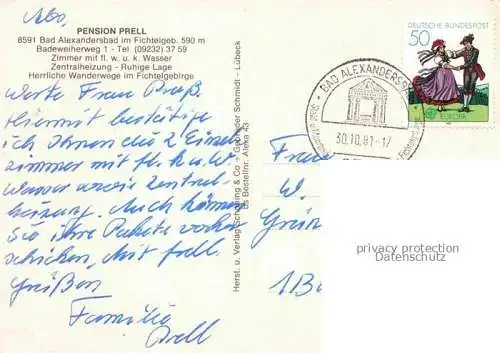 PENSION PRELL
8591 Bad Alexandersbad im Fichtelgeb. 590 m
Badeweiherweg 1 - Tel. (09232) 37 59
Zimmer mit fl. w. u. k. Wasser
Zentralheizung - Ruhige Lage
Herrliche Wanderwege im Fichtelgebirge
Werte Frau
Hiermit bestätige
ich Ihnen die 2 Einzel
zimmer mit fl. k. u. W.
Wasser sowie Zentral-
heizung. Auch können
Sie ihre Pakete vorher
schicken. Mit frdl.
Grüßen
Familie
Prell
Herst. u. Verlag Schöning & Co · Gebrüder Schmidt · Lübeck
Bestellnr. Alexa 43
DEUTSCHE BUNDESPOST
50
EUROPA
BAD ALEXANDERSBAD
30.10.81-17
Frau
W.
1
privacy protection
Datenschutz